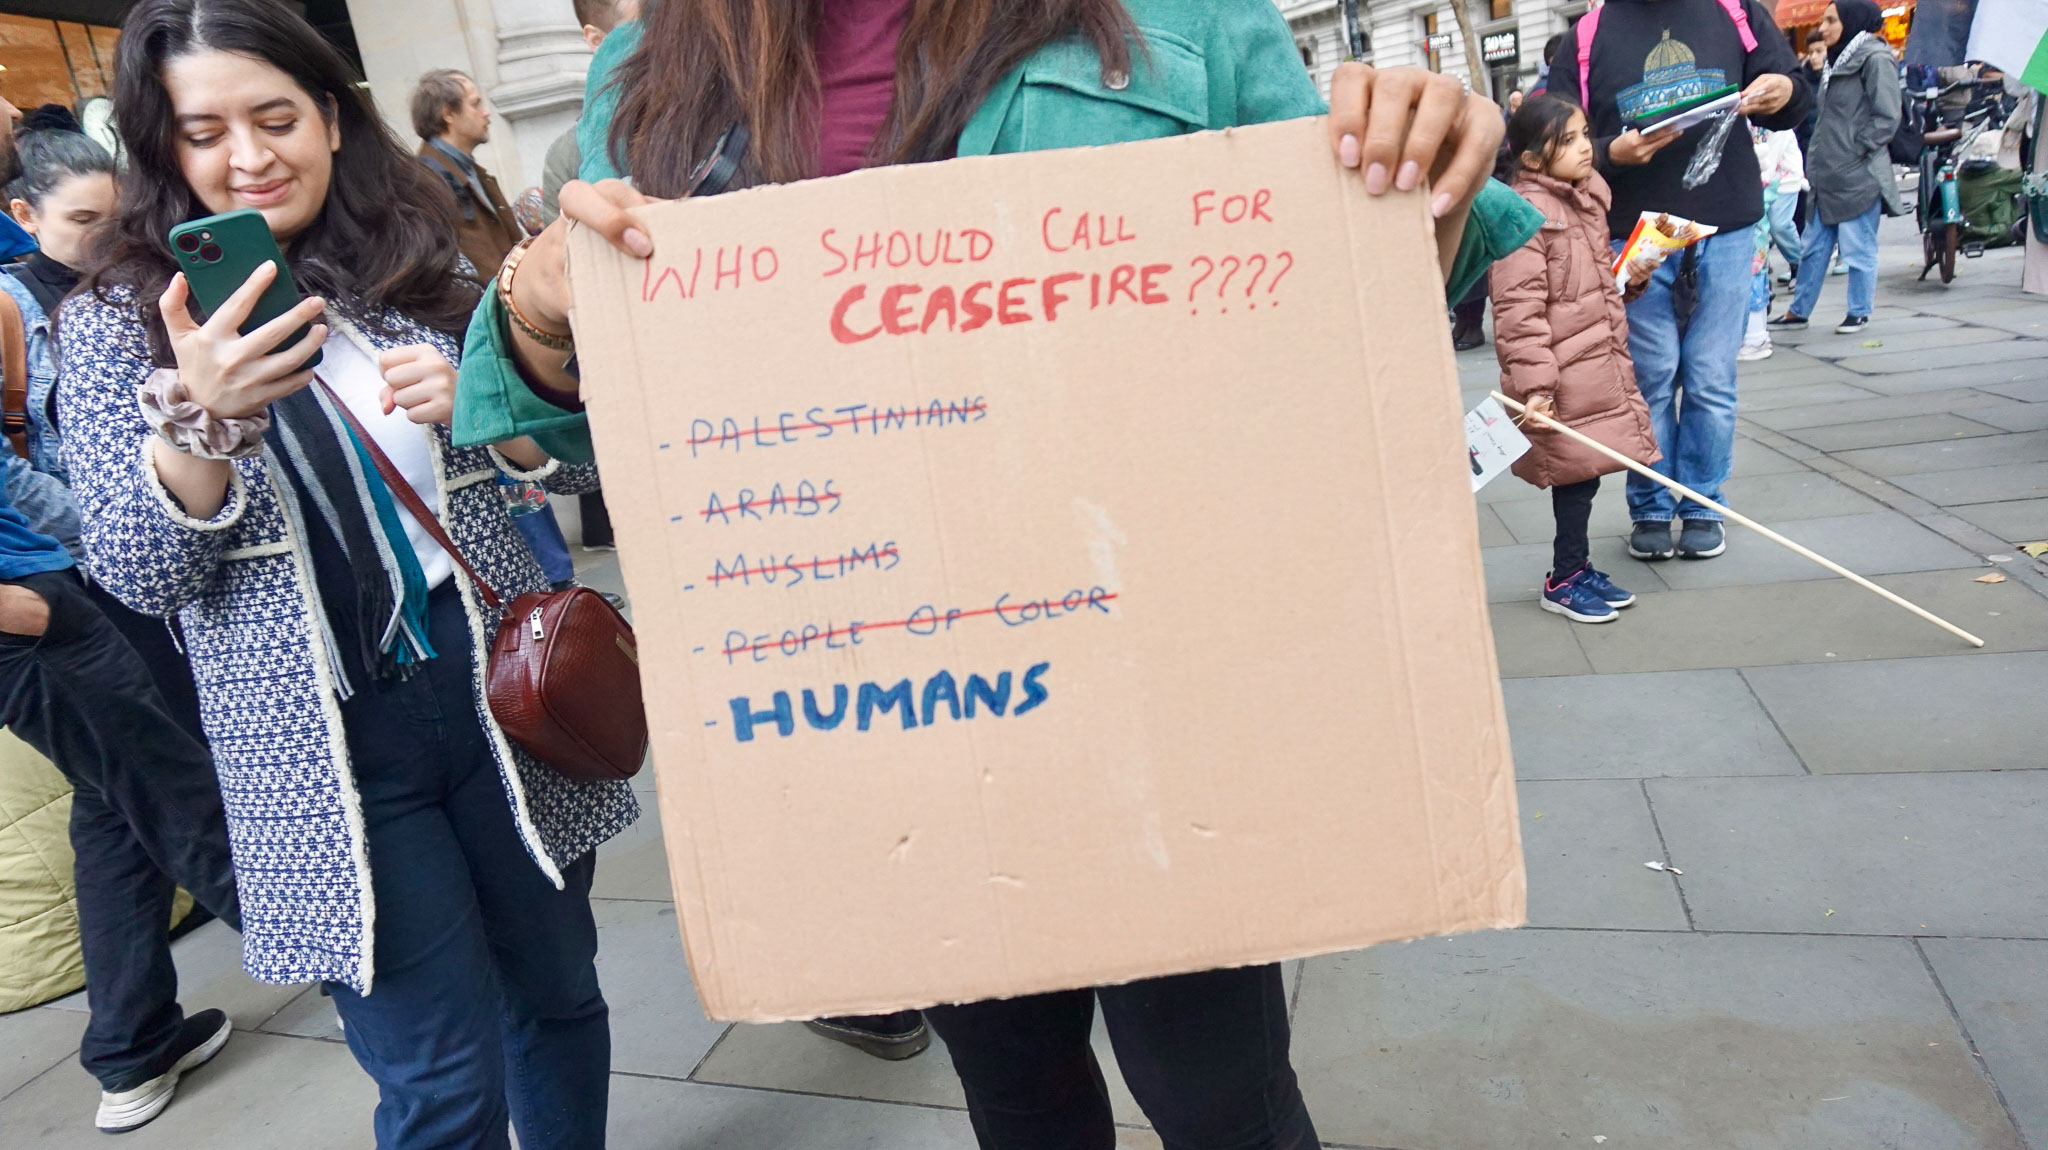 WHO SHOULD CALL FOR
CEASEFIRE????
- PALESTINIANS
- ARABS
- MUSLIMS
- PEOPLE OF COLOR
- HUMANS